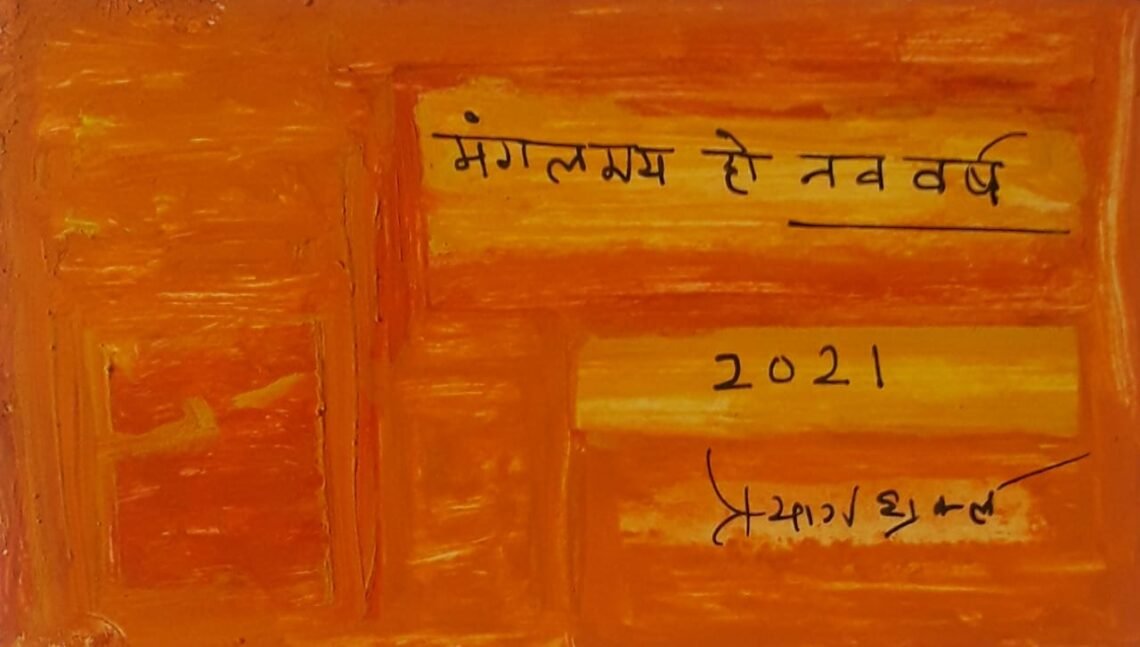 मंगलमय हो नव वर्ष
2021
प्रयाग शुक्ल